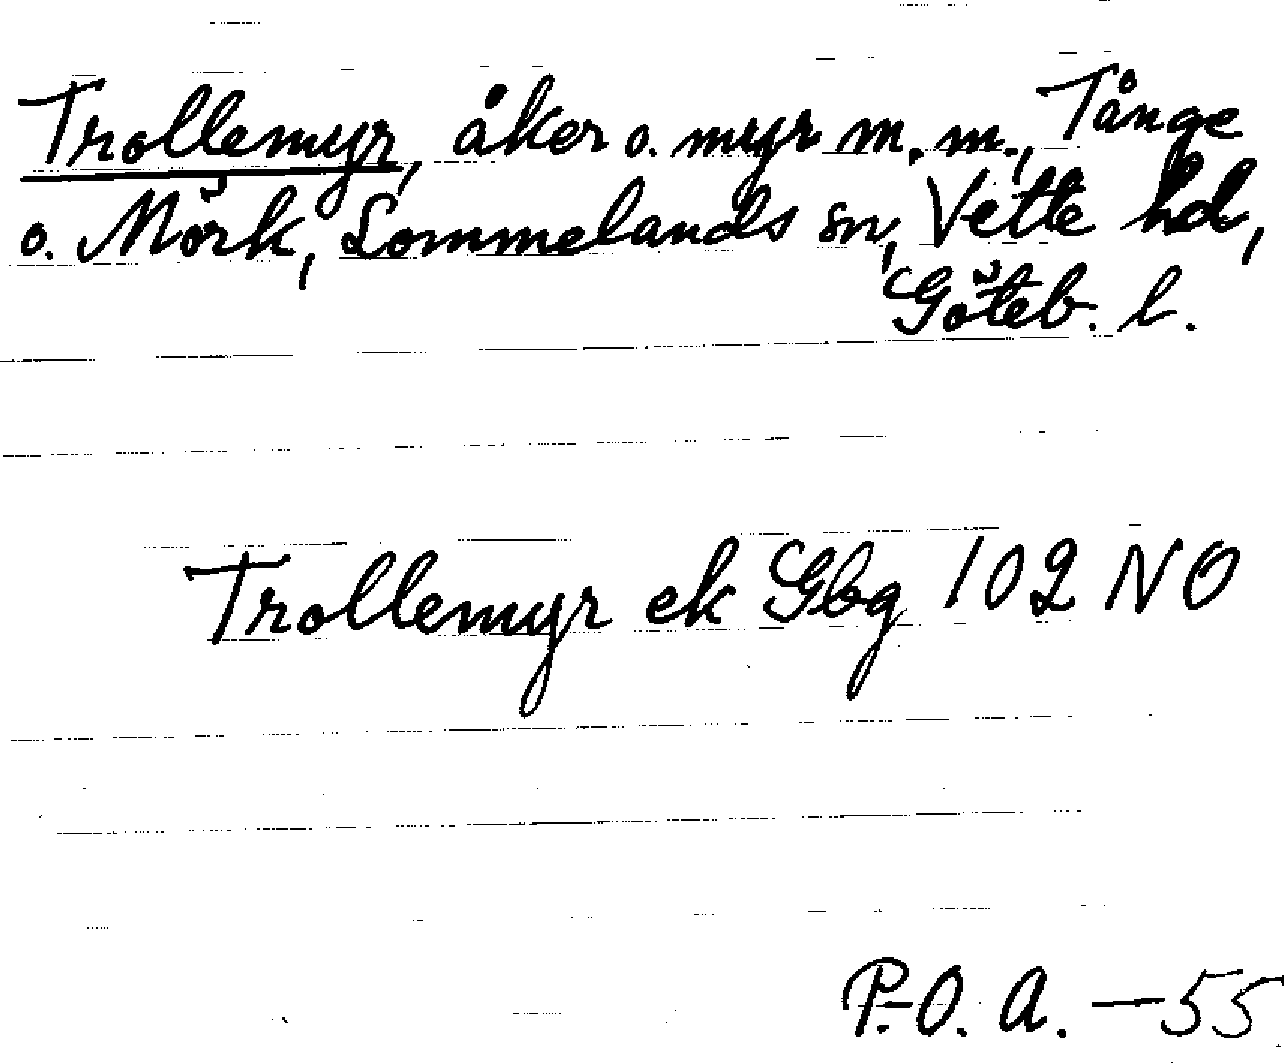 Trollemyr, åker o. myr m.m., Tånge
o. Mörk, Lommelands sn, Vette hd,
Göteb. l.
Trollemyr ek Gbg 102 NO
P.-O. A. -55